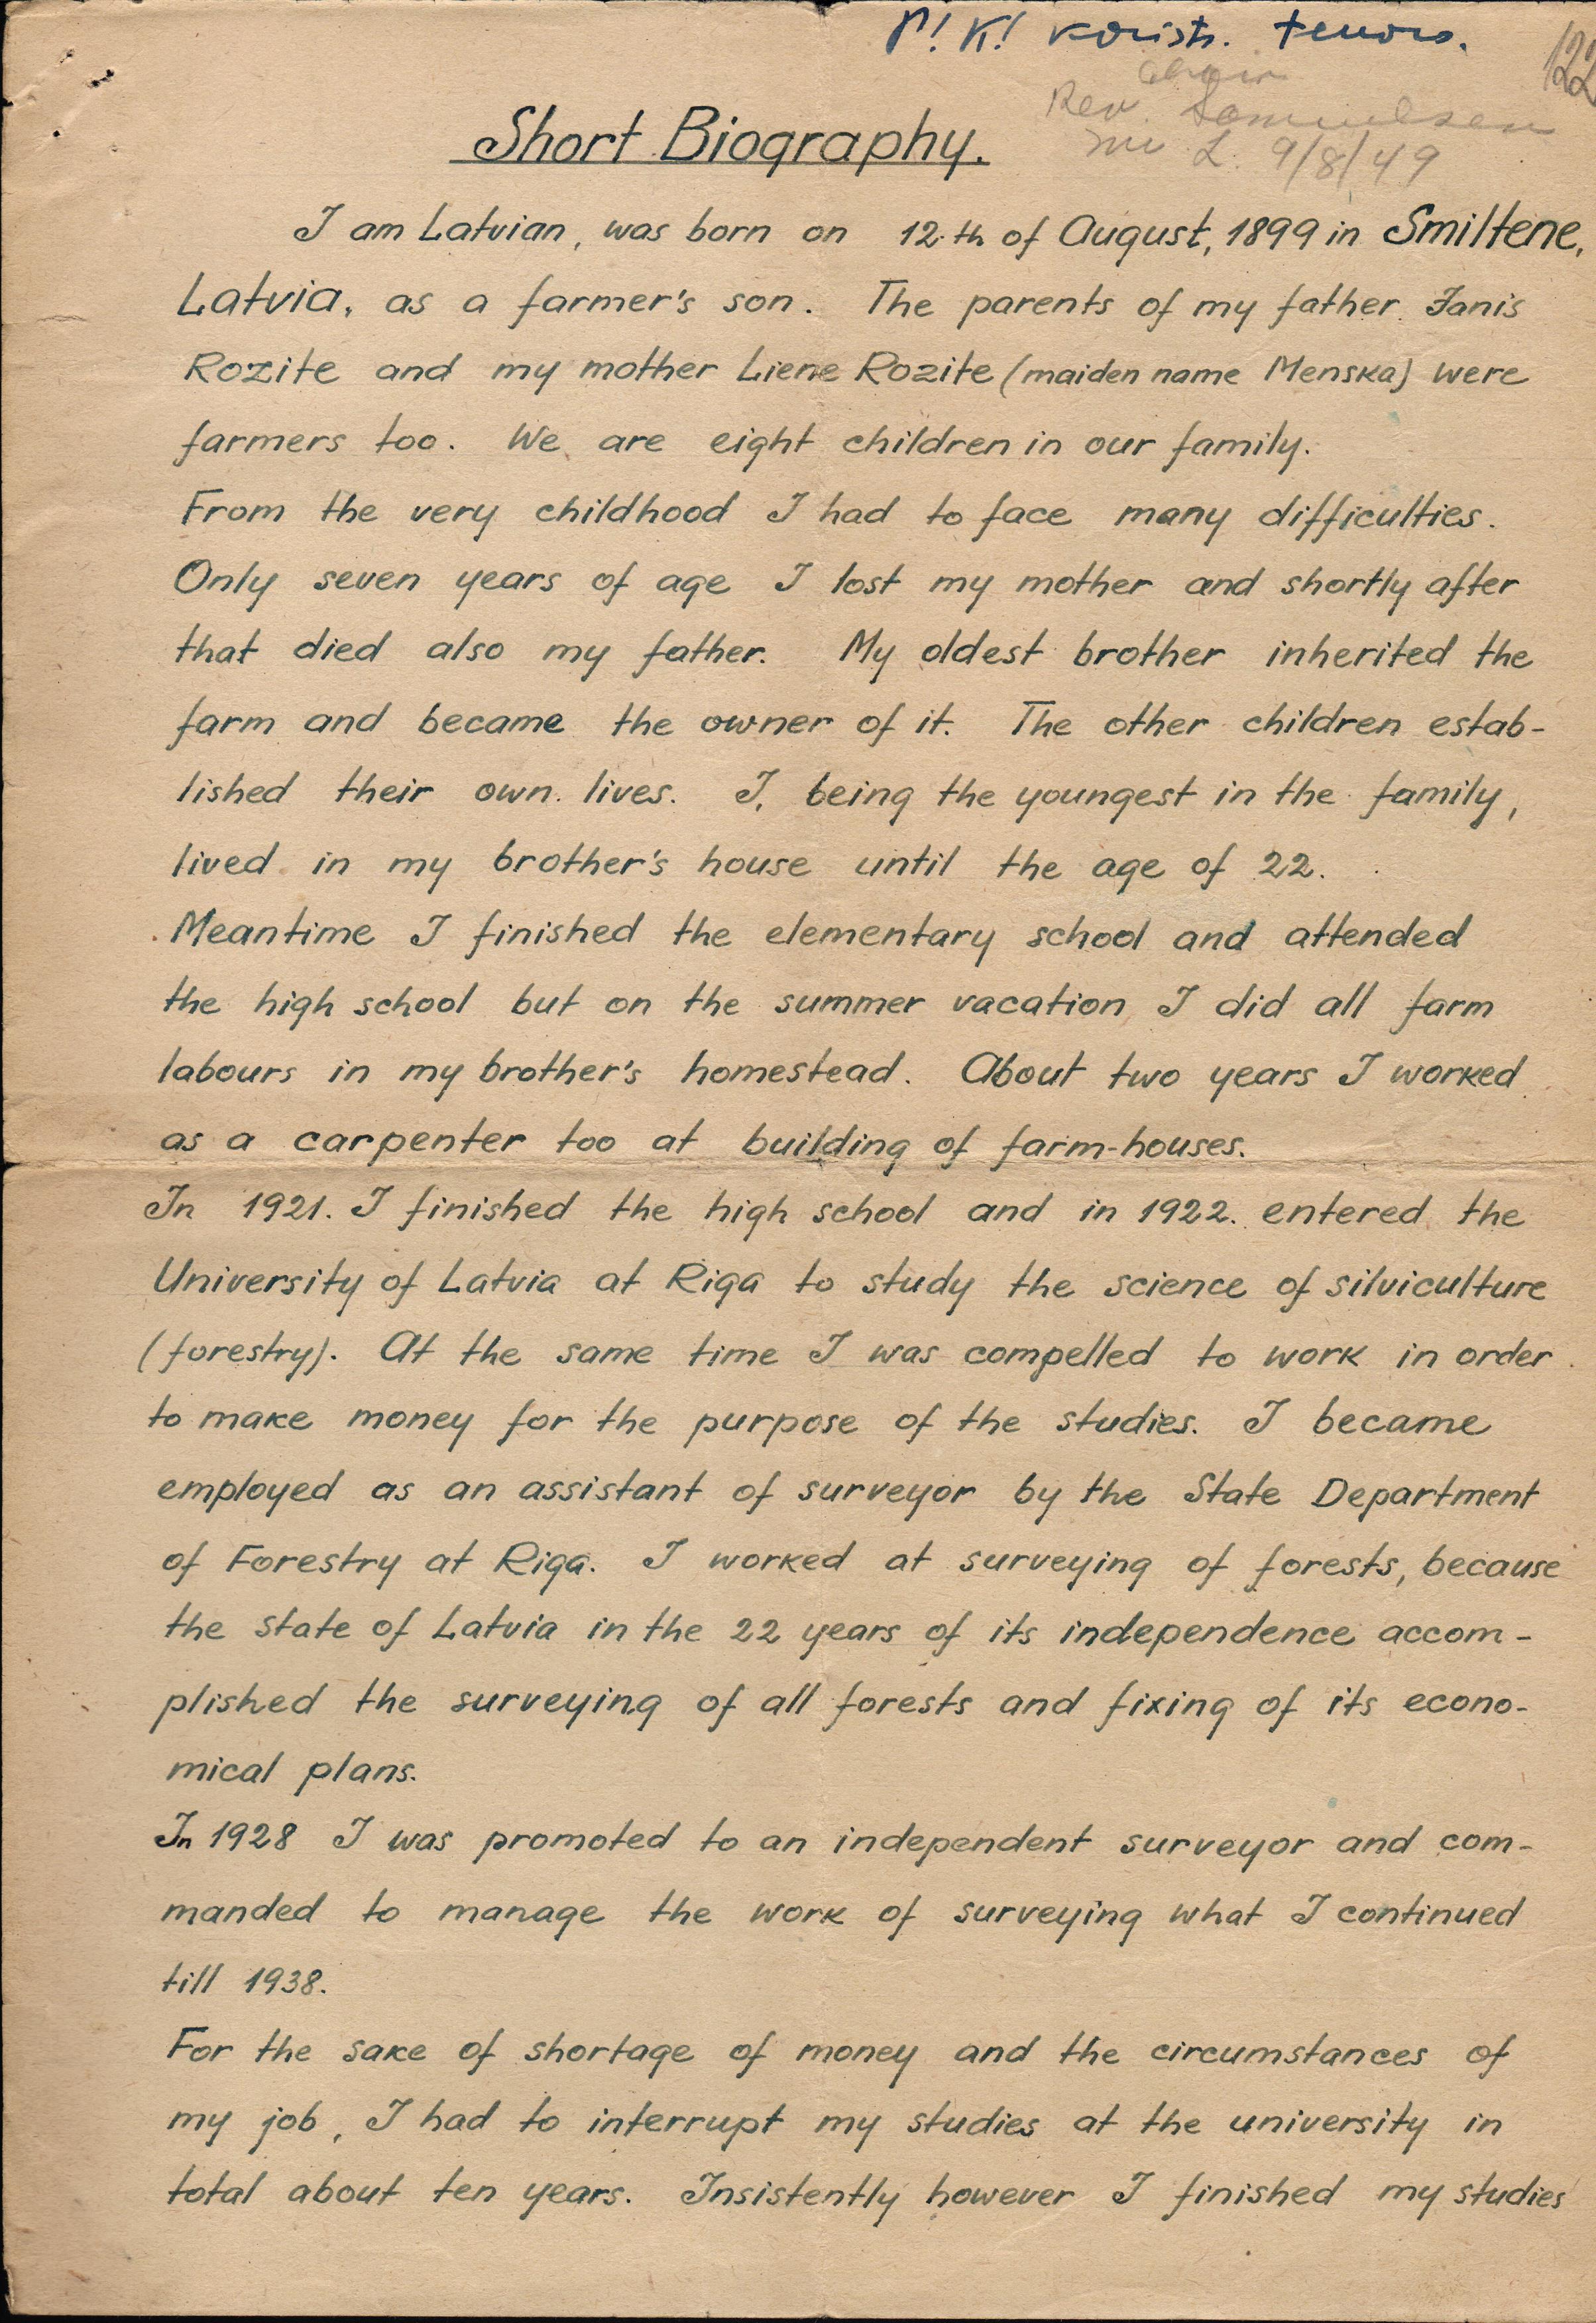 P! K! korists. tenors.
122
choir
Rev. Samuelsen
L. 9/8/49
Short Biography.
I am Latvian, was born on 12.th of August, 1899 in Smiltene,
Latvia, as a farmer's son. The parents of my father Janis
Rozite and my mother Liene Rozite (maiden name Menska) were
farmers too. We are eight children in our family.
From the very childhood I had to face many difficulties.
Only seven years of age I lost my mother and shortly after
that died also my father. My oldest brother inherited the
farm and became the owner of it. The other children estab-
lished their own lives. I, being the youngest in the family,
lived in my brother's house until the age of 22.
Meantime I finished the elementary school and attended
the high school but on the summer vacation I did all farm
labours in my brother's homestead. About two years I worked
as a carpenter too at building of farm-houses.
In 1921. I finished the high school and in 1922. entered the
University of Latvia at Riga to study the science of silviculture
(forestry). At the same time I was compelled to work in order
to make money for the purpose of the studies. I became
employed as an assistant of surveyor by the State Department
of Forestry at Riga. I worked at surveying of forests, because
the state of Latvia in the 22 years of its independence accom-
plished the surveying of all forests and fixing of its econo-
mical plans.
In 1928 I was promoted to an independent surveyor and com-
manded to manage the work of surveying what I continued
till 1938.
For the sake of shortage of money and the circumstances of
my job, I had to interrupt my studies at the university in
total about ten years. Insistently however I finished my studies